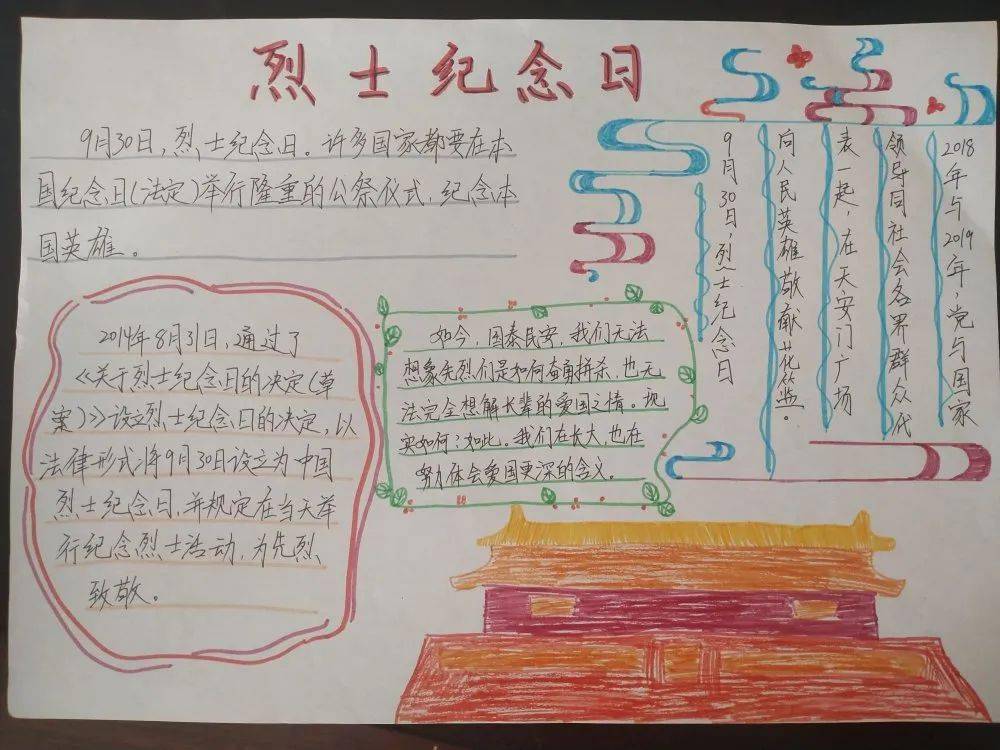 烈士纪念日
9月30日，烈士纪念日。许多国家都要在本
国纪念日(法定)举行隆重的公祭仪式，纪念本
国英雄。
2014年8月31日，通过了
《关于烈士纪念日的决定(草
案)》设立烈士纪念日的决定，以
法律形式将9月30日设立为中国
烈士纪念日，并规定在当天举
行纪念烈士活动，为先烈
致敬。
如今，国泰民安，我们无法
想象先烈们是如何奋勇拼杀，也无
法完全想解长辈的爱国之情。现
实如何？如此。我们在长大，也在
努力体会爱国更深的含义。
2018年与2019年，党与国家
领导同社会各界群众代
表一起，在天安门广场
向人民英雄敬献花篮。
9月30日，烈士纪念日